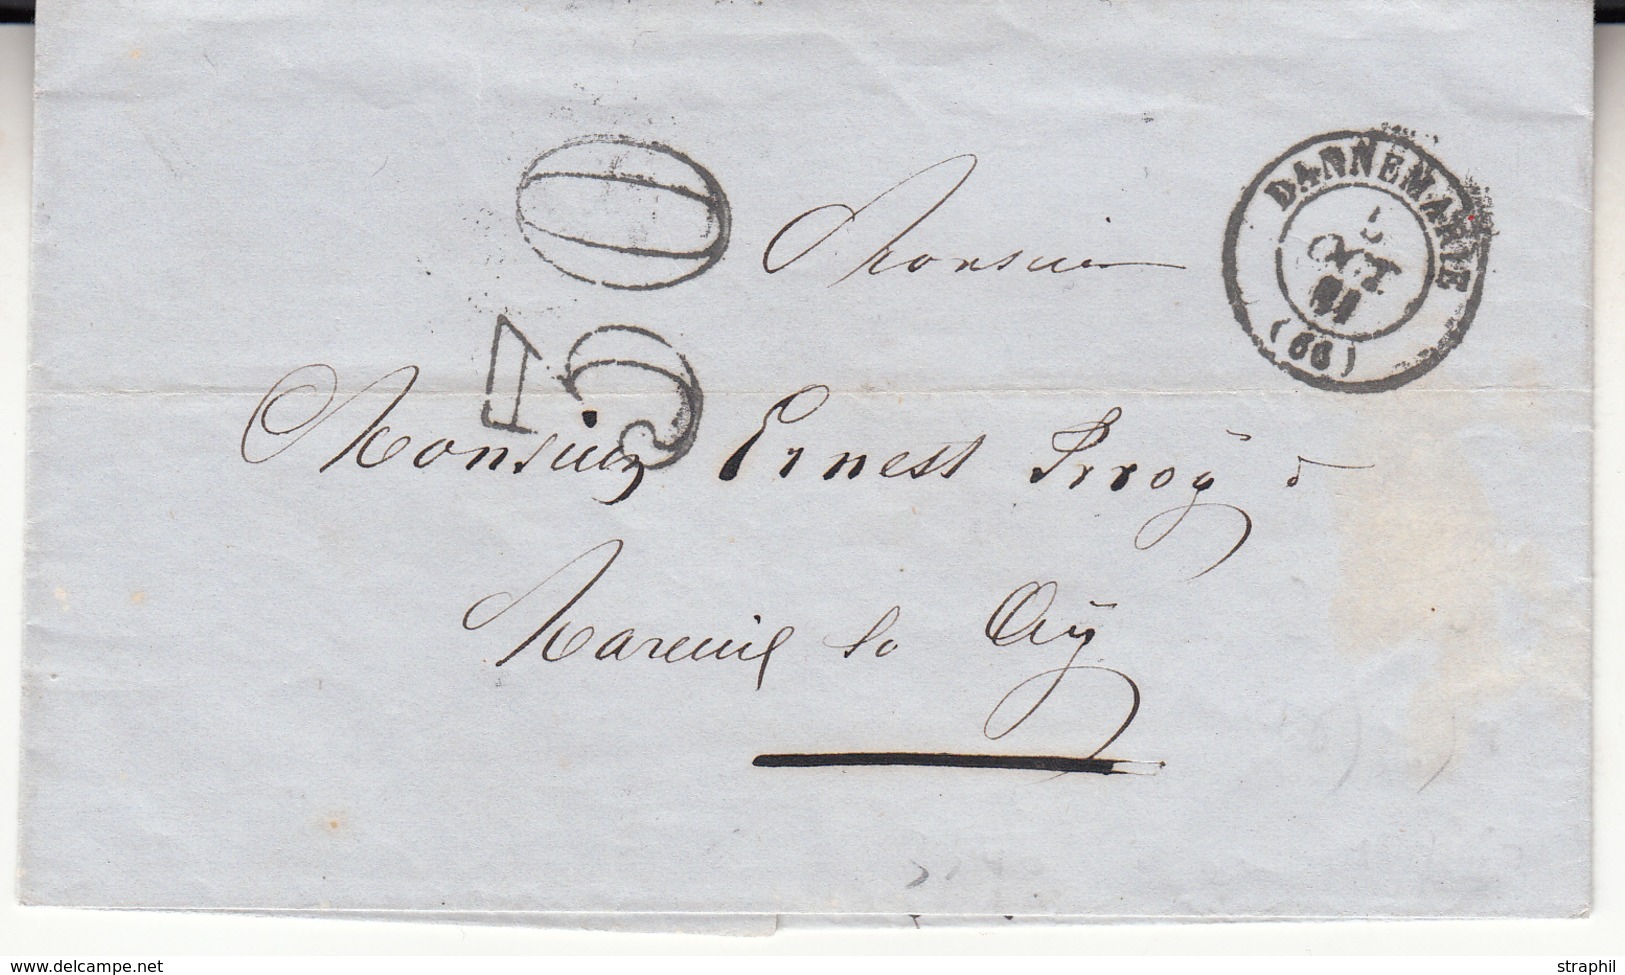 DANNEMARIE
OCT
(66)
30
Monsieur
Monsieur Ernest Irroÿ à
Mareuil s/ Aÿ
www.delcampe.net
straphil